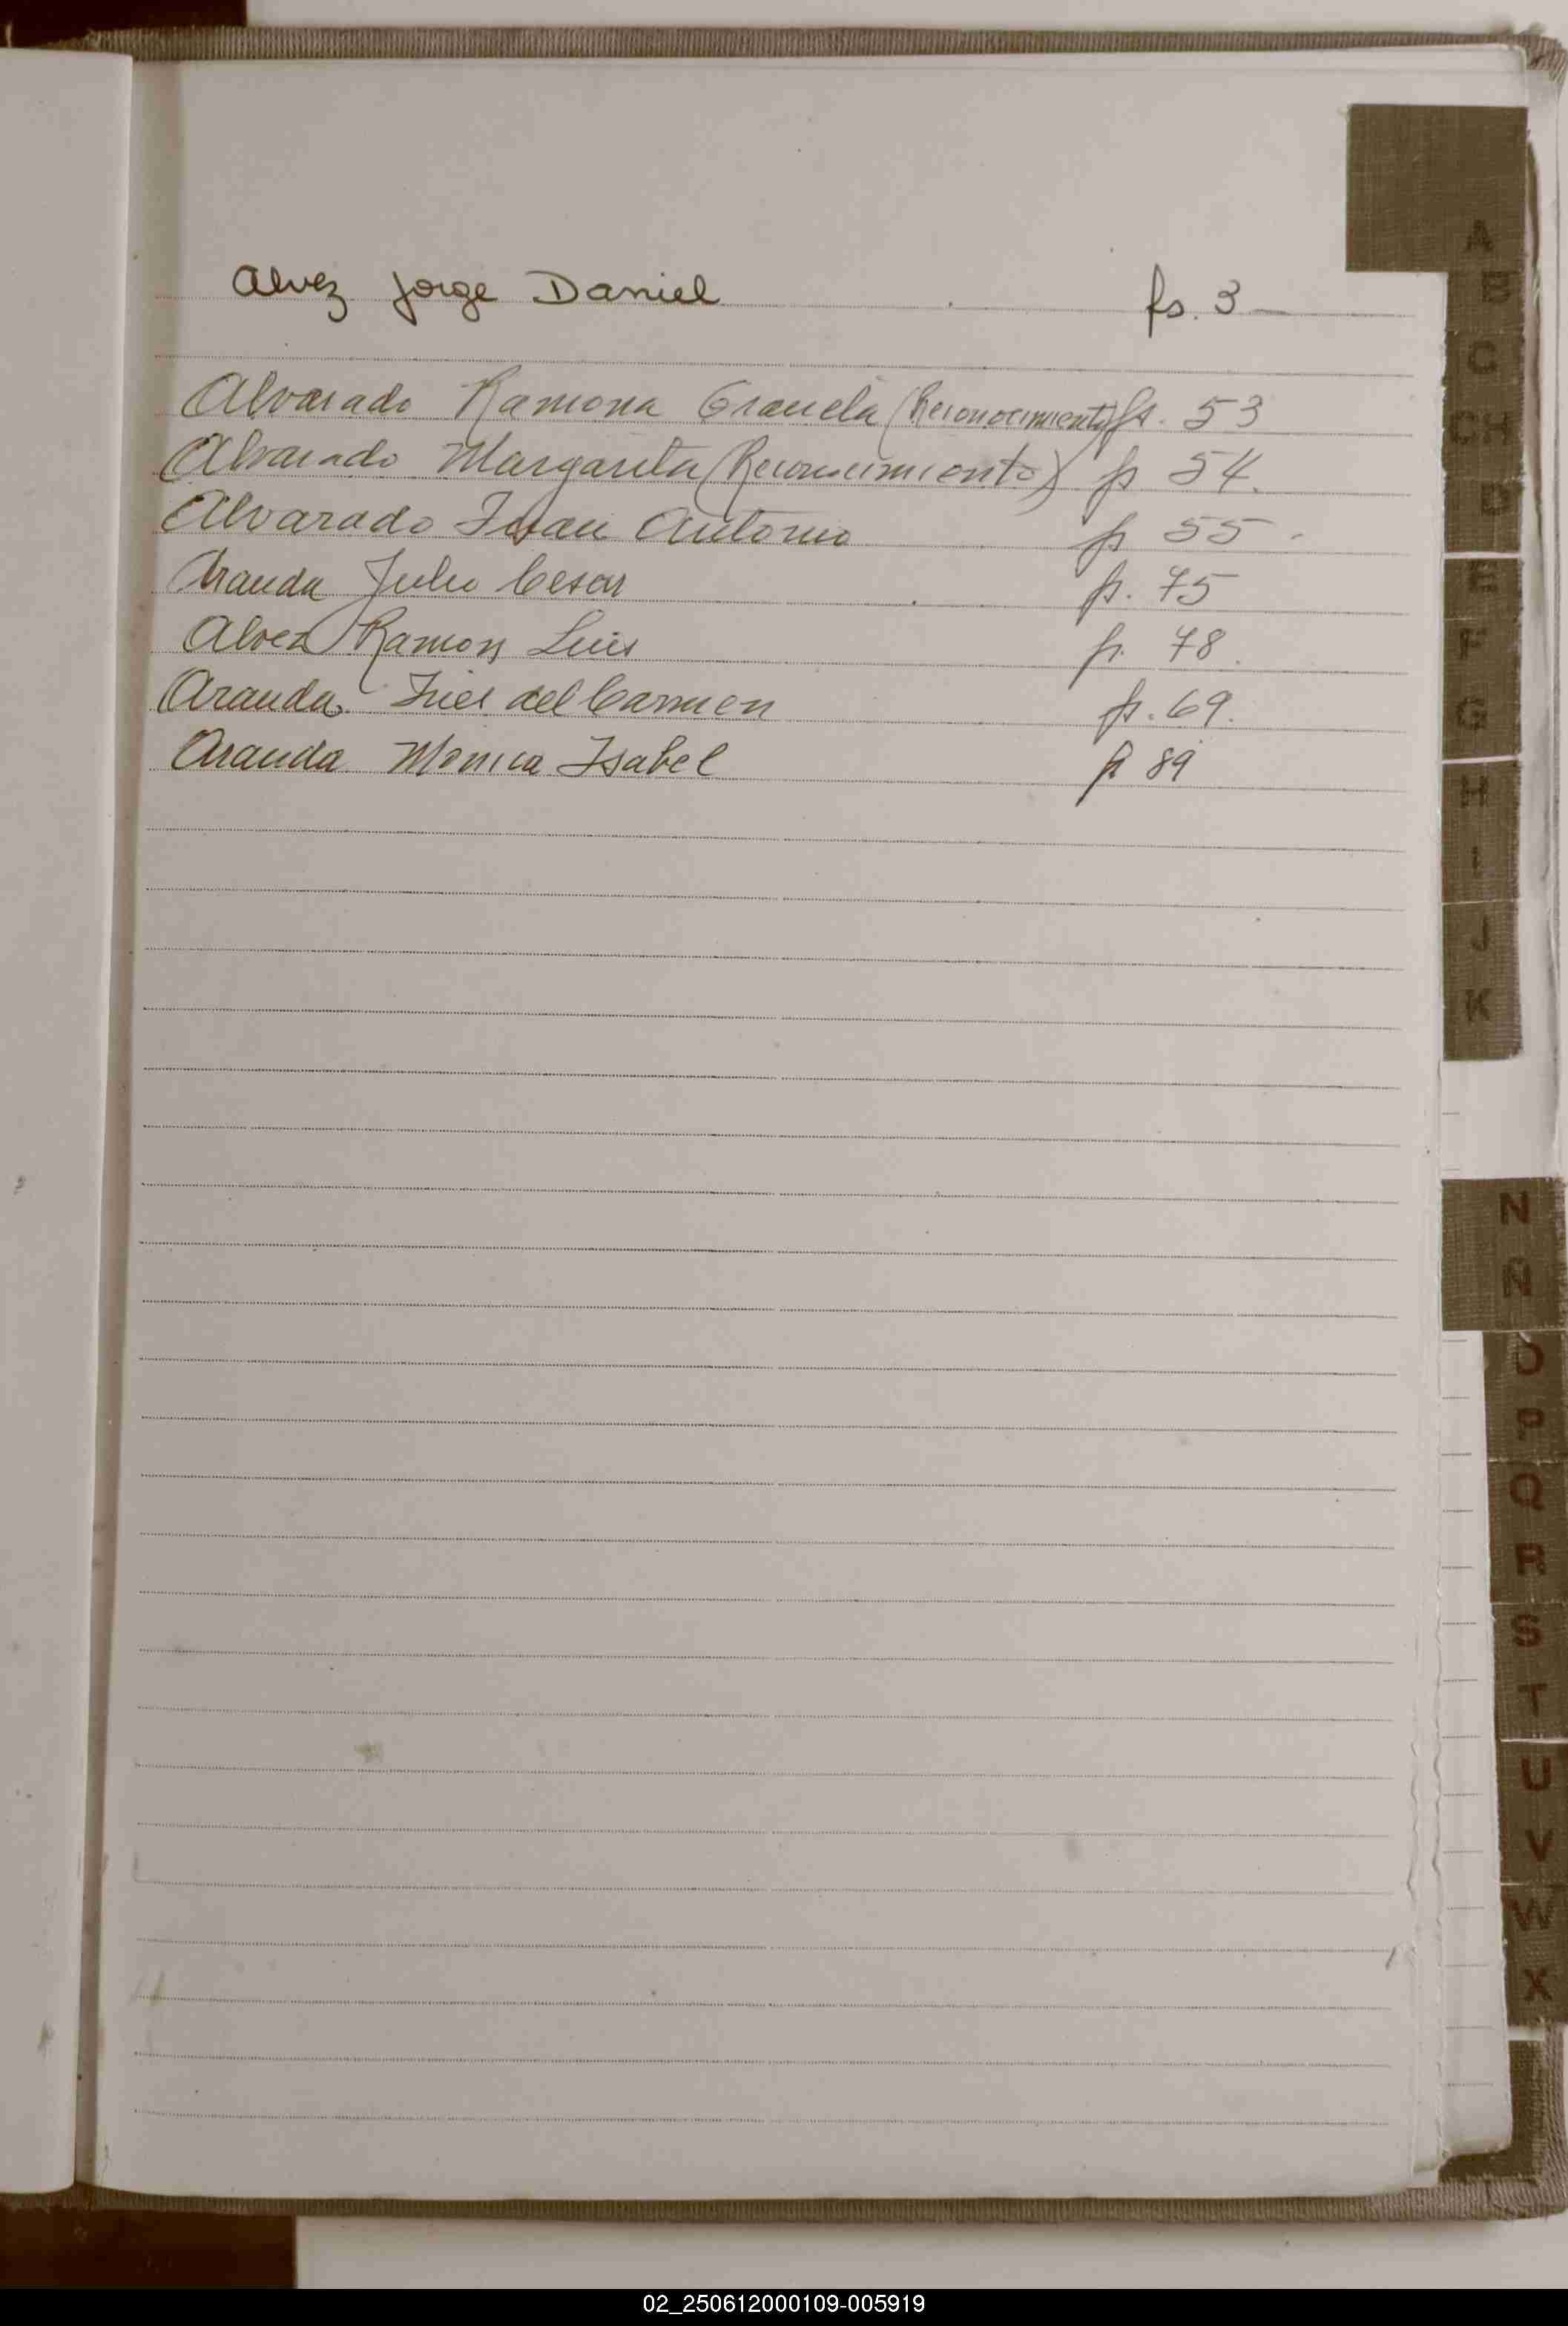 Alvez Jorge Daniel fs. 3
Alvarado Ramona Graciela (Reconocimiento) fs. 53
Alvarado Margarita (Reconocimiento) fs 54.
Alvarado Juan Antonio fs 55.
Aranda Julio Cesar fs. 75
Alvez Ramon Luis fs. 78.
Aranda Ines del Carmen fs. 69.
Aranda Monica Isabel fs 89
A
B
C
CH
D
E
F
G
H
I
J
K
N
Ñ
O
P
Q
R
S
T
U
V
W
X
02_250612000109-005919